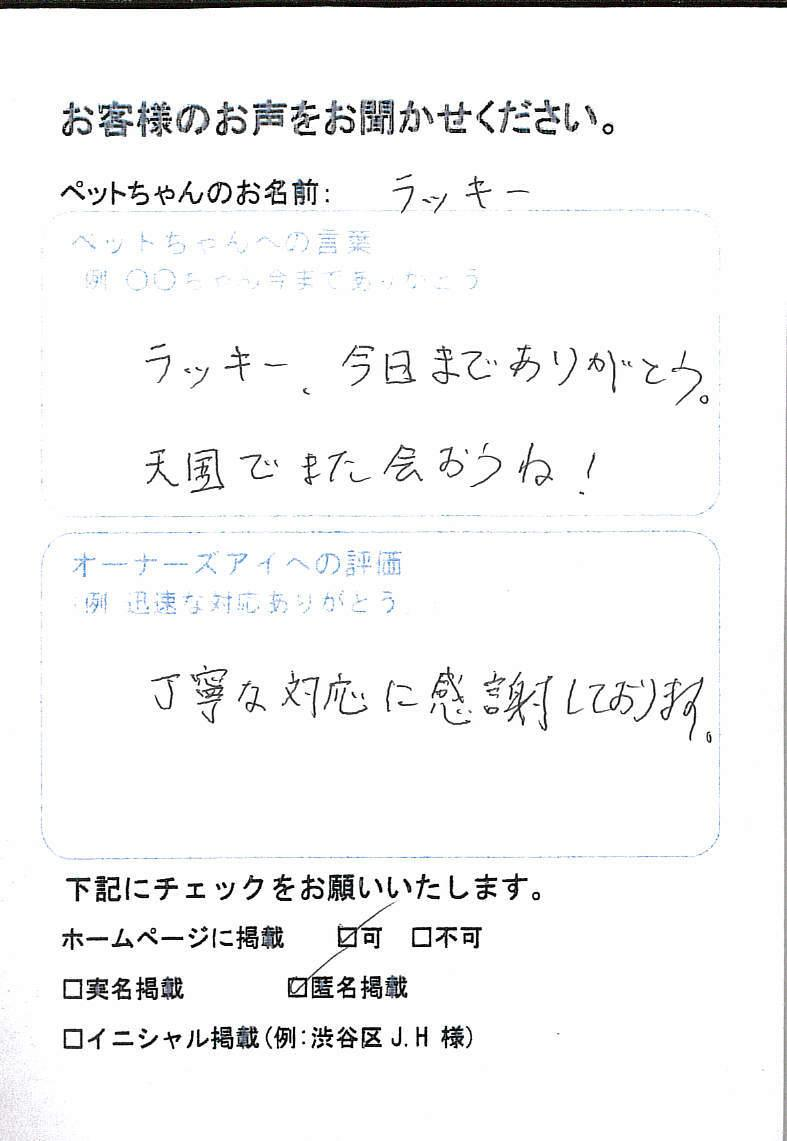 お客様のお声をお聞かせください。
ペットちゃんのお名前: ラッキー
ペットちゃんへの言葉
例 〇〇ちゃん今までありがとう
ラッキー、今日までありがとう。
天国でまた会おうね!
オーナーズアイへの評価
例 迅速な対応ありがとう
丁寧な対応に感謝しております。
下記にチェックをお願いいたします。
ホームページに掲載 ☑可 □不可
□実名掲載 ☑匿名掲載
□イニシャル掲載(例:渋谷区 J.H 様)